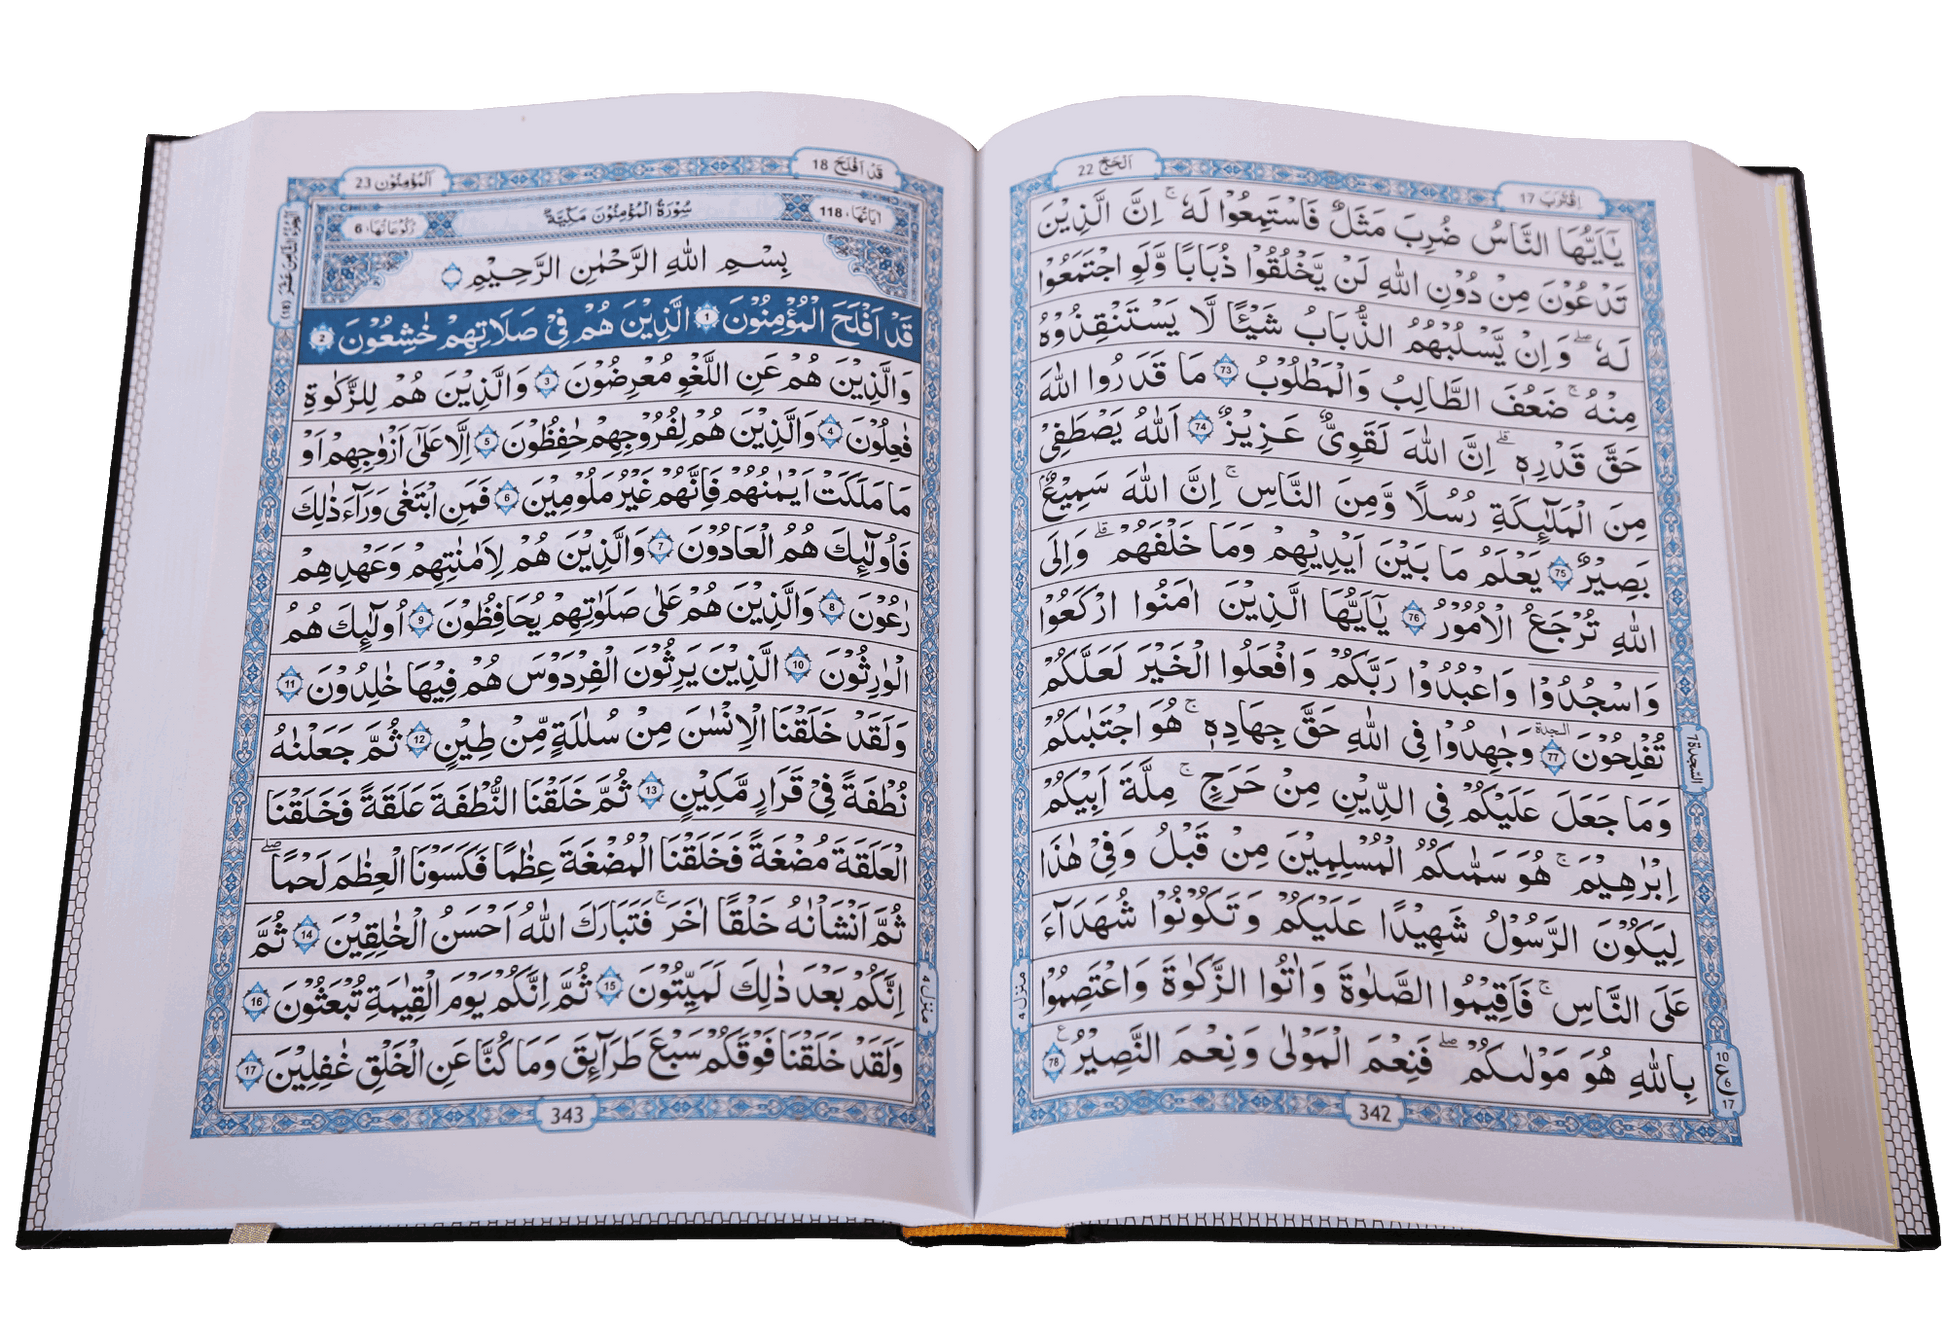 اَلْحَجّ 22
اِقْتَرَبَ 17
يٰٓاَيُّهَا النَّاسُ ضُرِبَ مَثَلٌ فَاسْتَمِعُوْا لَهٗ ۚ اِنَّ الَّذِيْنَ
تَدْعُوْنَ مِنْ دُوْنِ اللّٰهِ لَنْ يَّخْلُقُوْا ذُبَابًا وَّلَوِ اجْتَمَعُوْا
لَهٗ ۖ وَاِنْ يَّسْلُبْهُمُ الذُّبَابُ شَيْـًٔا لَّا يَسْتَنْقِذُوْهُ
مِنْهُ ۚ ضَعُفَ الطَّالِبُ وَالْمَطْلُوْبُ 73 مَا قَدَرُوا اللّٰهَ
حَقَّ قَدْرِهٖ ۗ اِنَّ اللّٰهَ لَقَوِيٌّ عَزِيْزٌ 74 اَللّٰهُ يَصْطَفِيْ
مِنَ الْمَلٰٓئِكَةِ رُسُلًا وَّمِنَ النَّاسِ ۚ اِنَّ اللّٰهَ سَمِيْعٌۢ
بَصِيْرٌ 75 يَعْلَمُ مَا بَيْنَ اَيْدِيْهِمْ وَمَا خَلْفَهُمْ ۗ وَاِلَى
اللّٰهِ تُرْجَعُ الْاُمُوْرُ 76 يٰٓاَيُّهَا الَّذِيْنَ اٰمَنُوا ارْكَعُوْا
وَاسْجُدُوْا وَاعْبُدُوْا رَبَّكُمْ وَافْعَلُوا الْخَيْرَ لَعَلَّكُمْ
تُفْلِحُوْنَ السجدة 77 وَجٰهِدُوْا فِى اللّٰهِ حَقَّ جِهَادِهٖ ۚ هُوَ اجْتَبٰىكُمْ
السّجدة 7
وَمَا جَعَلَ عَلَيْكُمْ فِى الدِّيْنِ مِنْ حَرَجٍ ۚ مِلَّةَ اَبِيْكُمْ
اِبْرٰهِيْمَ ۚ هُوَ سَمّٰىكُمُ الْمُسْلِمِيْنَ مِنْ قَبْلُ وَفِيْ هٰذَا
لِيَكُوْنَ الرَّسُوْلُ شَهِيْدًا عَلَيْكُمْ وَتَكُوْنُوْا شُهَدَآءَ
عَلَى النَّاسِ ۚ فَاَقِيْمُوا الصَّلٰوةَ وَاٰتُوا الزَّكٰوةَ وَاعْتَصِمُوْا
منزل 4
بِاللّٰهِ هُوَ مَوْلٰىكُمْ ۖ فَنِعْمَ الْمَوْلٰى وَنِعْمَ النَّصِيْرُ ع 78
10
ع 6
17
342
قَدْ اَفْلَحَ 18
اَلْمُؤْمِنُوْن 23
الجزء الثامن عشر (18)
اٰيَاتُهَا، 118
سُوْرَةُ الْمُؤْمِنُوْنَ مَكِّيَّةٌ
رُكُوْعَاتُهَا، 6
بِسْمِ اللّٰهِ الرَّحْمٰنِ الرَّحِيْمِ
قَدْ اَفْلَحَ الْمُؤْمِنُوْنَ 1 الَّذِيْنَ هُمْ فِيْ صَلَاتِهِمْ خٰشِعُوْنَ 2
وَالَّذِيْنَ هُمْ عَنِ اللَّغْوِ مُعْرِضُوْنَ 3 وَالَّذِيْنَ هُمْ لِلزَّكٰوةِ
فٰعِلُوْنَ 4 وَالَّذِيْنَ هُمْ لِفُرُوْجِهِمْ حٰفِظُوْنَ 5 اِلَّا عَلٰٓى اَزْوٰجِهِمْ اَوْ
مَا مَلَكَتْ اَيْمٰنُهُمْ فَاِنَّهُمْ غَيْرُ مَلُوْمِيْنَ 6 فَمَنِ ابْتَغٰى وَرَآءَ ذٰلِكَ
فَاُولٰٓئِكَ هُمُ الْعَادُوْنَ 7 وَالَّذِيْنَ هُمْ لِاَمٰنٰتِهِمْ وَعَهْدِهِمْ
رٰعُوْنَ 8 وَالَّذِيْنَ هُمْ عَلٰى صَلَوٰتِهِمْ يُحَافِظُوْنَ 9 اُولٰٓئِكَ هُمُ
الْوٰرِثُوْنَ 10 الَّذِيْنَ يَرِثُوْنَ الْفِرْدَوْسَ هُمْ فِيْهَا خٰلِدُوْنَ 11
وَلَقَدْ خَلَقْنَا الْاِنْسٰنَ مِنْ سُلٰلَةٍ مِّنْ طِيْنٍ 12 ثُمَّ جَعَلْنٰهُ
نُطْفَةً فِيْ قَرَارٍ مَّكِيْنٍ 13 ثُمَّ خَلَقْنَا النُّطْفَةَ عَلَقَةً فَخَلَقْنَا
الْعَلَقَةَ مُضْغَةً فَخَلَقْنَا الْمُضْغَةَ عِظٰمًا فَكَسَوْنَا الْعِظٰمَ لَحْمًا ۖ
ثُمَّ اَنْشَاْنٰهُ خَلْقًا اٰخَرَ ۚ فَتَبَارَكَ اللّٰهُ اَحْسَنُ الْخٰلِقِيْنَ 14 ثُمَّ
اِنَّكُمْ بَعْدَ ذٰلِكَ لَمَيِّتُوْنَ 15 ثُمَّ اِنَّكُمْ يَوْمَ الْقِيٰمَةِ تُبْعَثُوْنَ 16
منزل 4
وَلَقَدْ خَلَقْنَا فَوْقَكُمْ سَبْعَ طَرَآئِقَ وَمَا كُنَّا عَنِ الْخَلْقِ غٰفِلِيْنَ 17
343